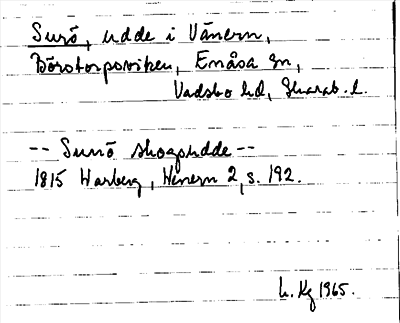 Surö, udde i Vänern,
Börstorpsviken, Enåsa sn,
Vadsbo hd, Skarab. l.
-- Surrö skogsudde --
1815 Warberg, Wenern 2, s. 192.
L. Kg 1965.